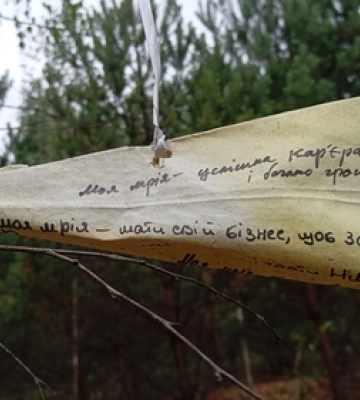 Моя мрія - успішна кар'єра
і багато гроше
моя мрія - мати свій бізнес, щоб за
Моя мрія